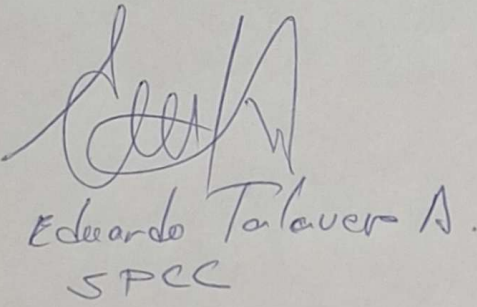 Eduardo Talaver A.
SPCC